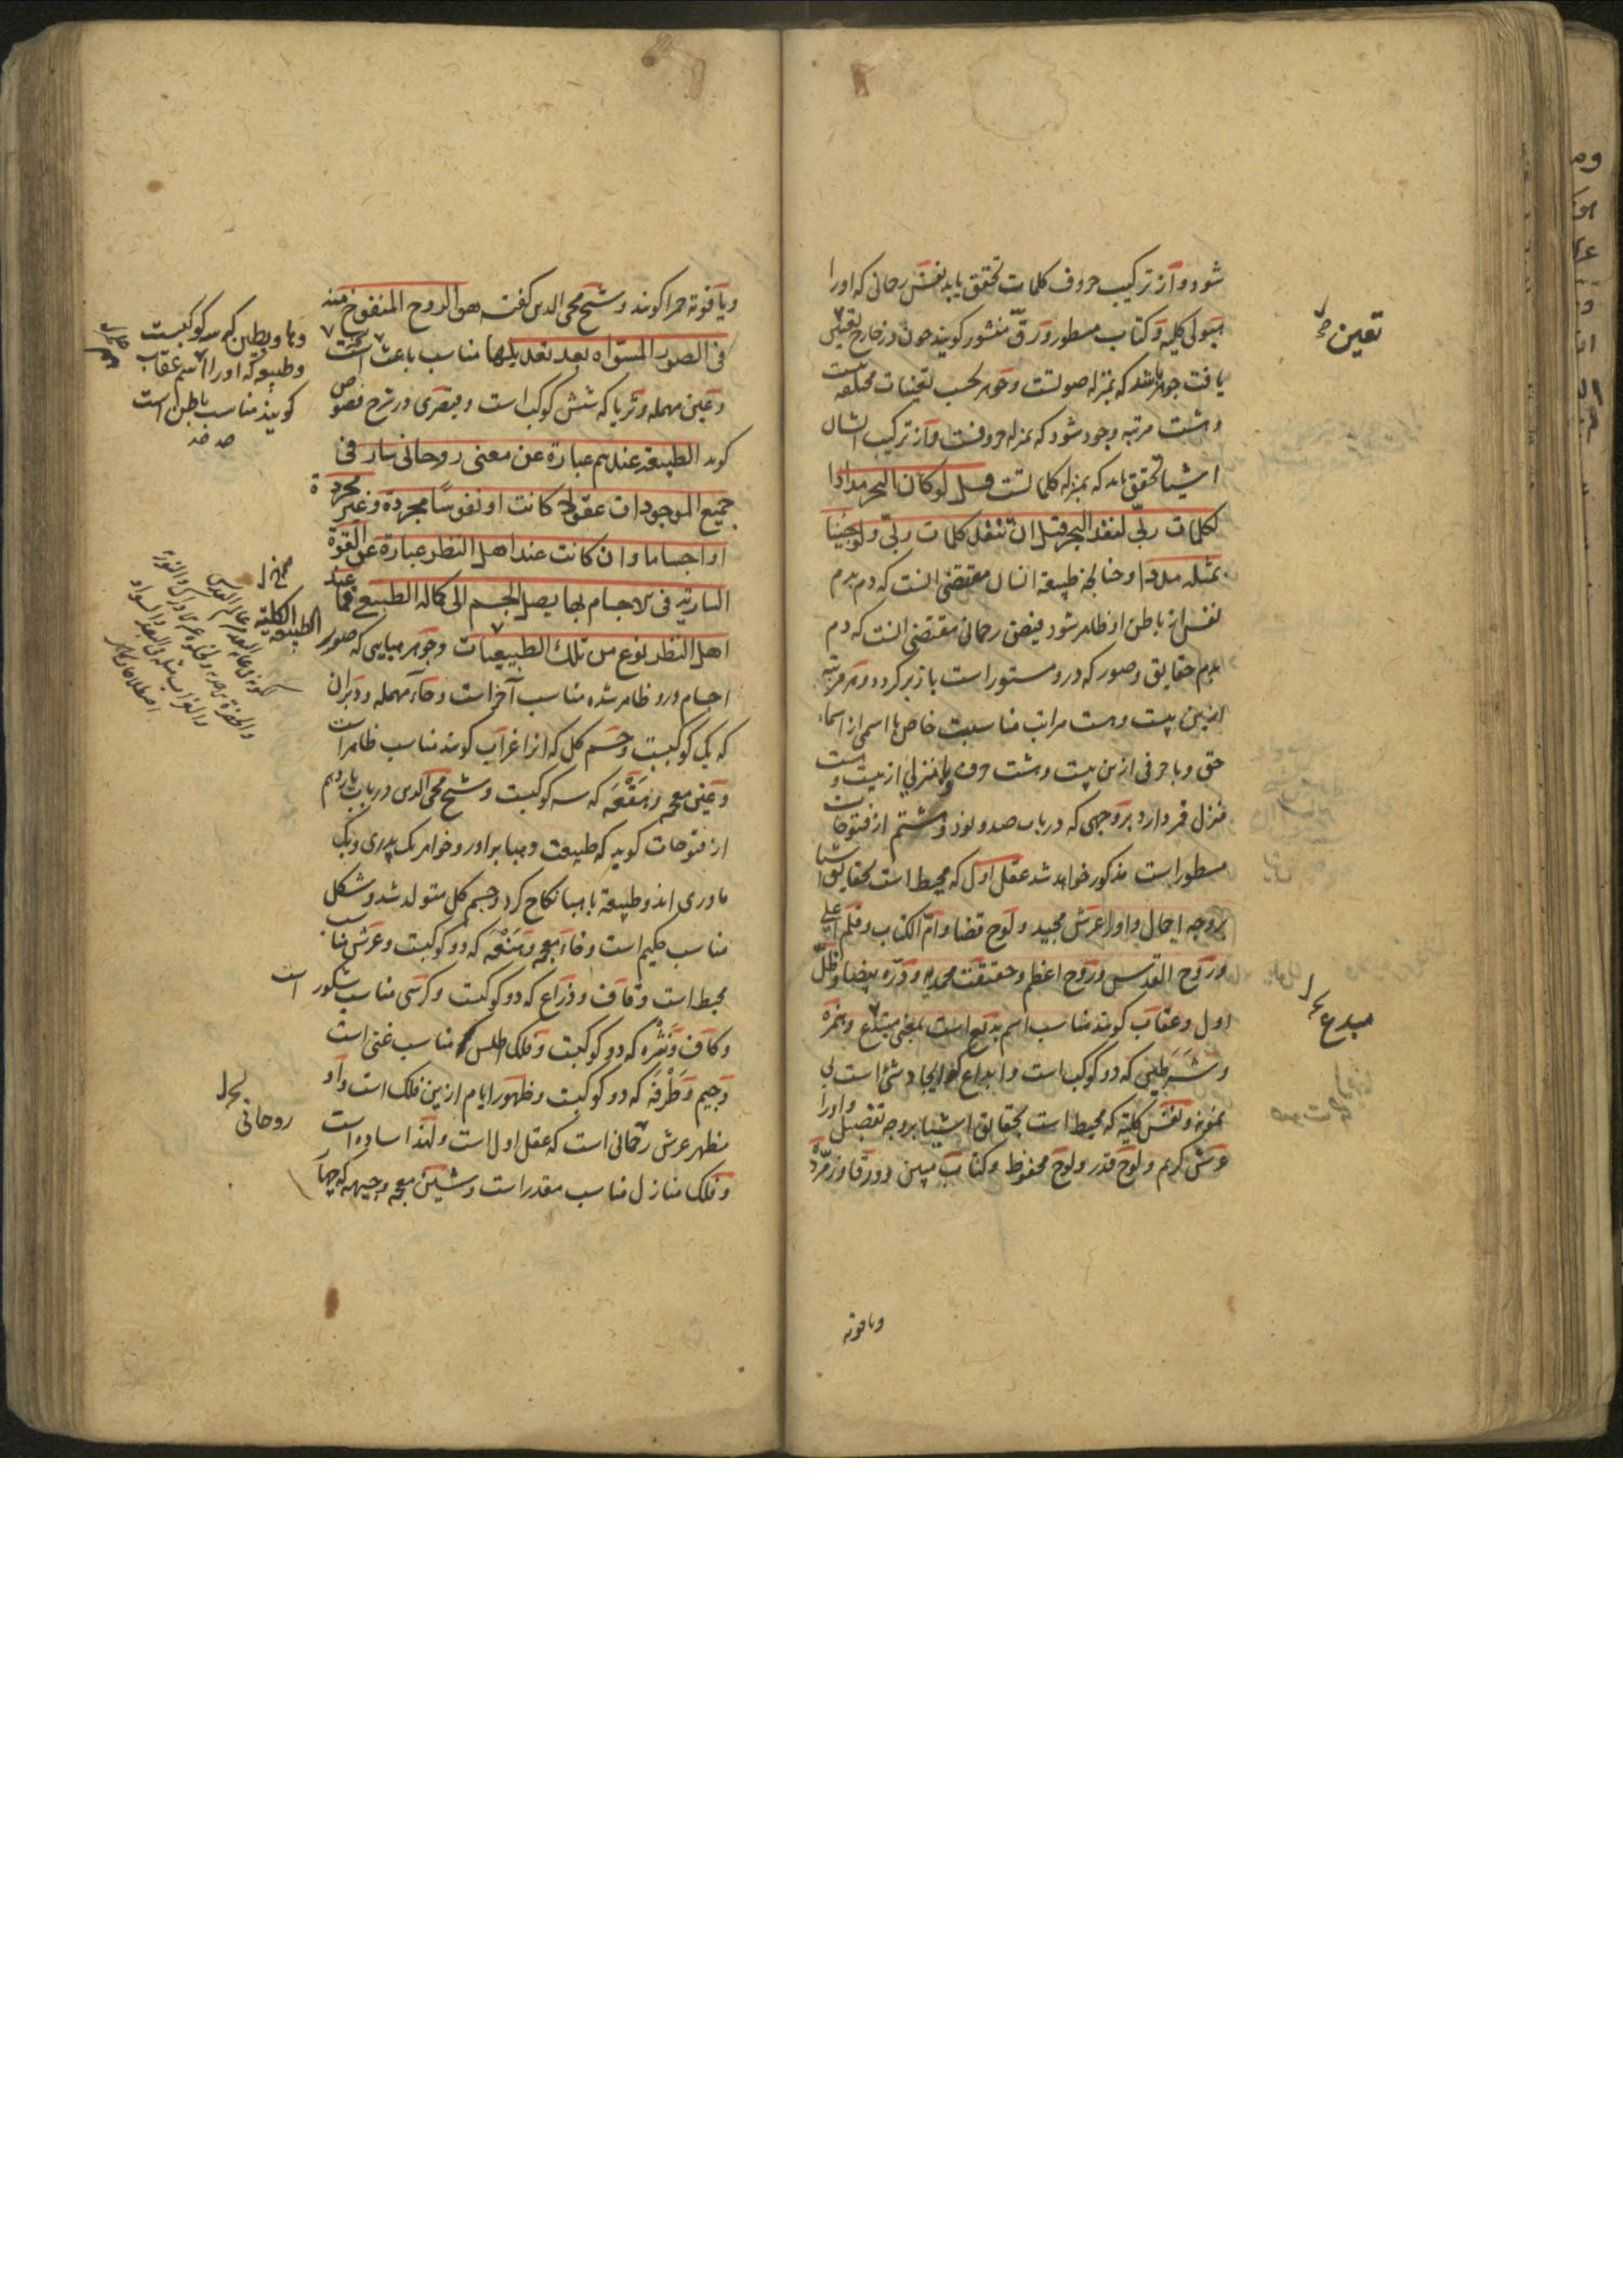 شود و از ترکیب حروف کلمات تحقق یابد نفس رحمانی که اورا
هیولی کلیه و کتاب مسطور و رق منشور کویند چون در خارج تعین
یافت جوهر باشد که بمنزله صوتست و جوهر بحسب تعینات مختلفه بیست
و هشت مرتبه وجود شود که بمنزله حروفست و از ترکیب ایشان
اشیا تحقق یابد که بمنزله کلماتست قل لو کان البحر مدادا
لکلمات ربی لنفد البحر قبل ان تنفد کلمات ربی ولو جئنا
بمثله مددا و چنانچه طبیعة انسان مقتضی آنست که دم بدم
نفس از باطن او ظاهر شود فیض رحمانی مقتضی آنست که دم
بدم حقایق و صور که درو مستور است بازبر کردد و هر مرتبه
ازین بیست و هشت مراتب مناسبت خاص با اسمی از اسماء
حق و با حرفی ازین بیست و هشت حرف و با منزلی از بیست و هشت
منزل قمر دارد بر وجهی که در باب صد و نود و هشتم از فتوحات
مسطور است مذکور خواهد شد عقل اول که محیط است بحقایق اشیا
بر وجه اجمال و اورا عرش مجید و لوح قضا و ام الکتاب و قلم اعلی
و روح القدس و روح اعظم و حقیقت محمدیه و دره بیضا و ظل
اول و عقاب کویند مناسب اسم بدیع است بمعنی مبتدع و همزه
و شرطین که دو کوکب است و ابداع ایجاد شئ است بی
نمونه و نفس کلیة که محیط است بحقایق اشیا بر وجه تفصیل و اورا
عرش کریم و لوح قدر و لوح محفوظ و کتاب مبین و ورقا و زمرده
ویاقوته
تعین
مبدع
ویاقوته حمرا کویند و شیخ محی الدین کفته هو الروح المنفوخ منه
فی الصور المسواه بعد تعدیلها مناسب باعث است
و عین مهمله و ثریا که شش کوکب است و قیصری در شرح فصوص
کوید الطبیعة عندهم عبارة عن معنی روحانی سار فی
جمیع الموجودات عقولا کانت او نفوسا مجردة و غیر مجردة
او اجساما و ان کانت عند اهل النظر عبارة عن القوة
الساریة فی الاجسام بها یصل الجسم الی کماله الطبیعی فما عند
اهل النظر نوع من تلک الطبیعیات و جوهر هبایی که صور
اجسام درو ظاهر شده مناسب آخر است و حاء مهمله و دبران
که یک کوکبست و جسم کل که انرا غراب کویند مناسب ظاهر است
و غین معجمه و هقعه که سه کوکبست و شیخ محی الدین در باب یازدهم
از فتوحات کوید که طبیعت و هبا برادر و خواهر یک پدری و یک
مادری اند و طبیعة با هبا نکاح کرد و جسم کل متولد شد و شکل
مناسب حکیم است و خاء معجمه و هنعه که دو کوکبست و عرش مناسب
محیط است و قاف و ذراع که دو کوکبست و کرسی مناسب شکور است
و کاف و نثره که دو کوکبست و فلک اطلس مناسب غنی است
و جیم و طرفه که دو کوکبست و ظهور ایام ازین فلک است و او
مظهر عرش رحمانی است که عقل اول است و لهذا ساده است
و فلک منازل مناسب مقدر است و شین معجمه و جبهه که چهار
وها و بطین که سه کوکبست
و طبیعة که اورا اسم عقاب
کویند مناسب باطن است
الطبیعة الکلیة
روحانی